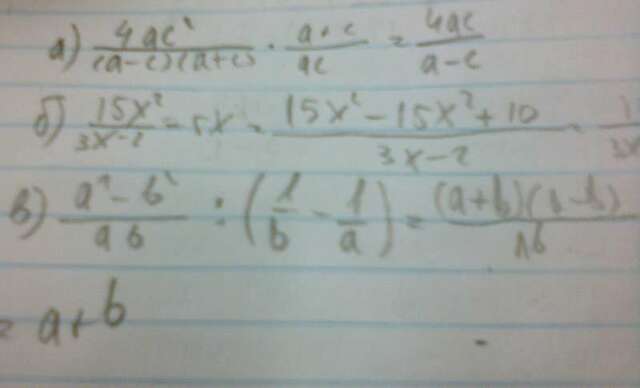 а) 4ac² / (a-c)(a+c) · a+c / ac = 4ac / a-c
б) 15x² / 3x-2 - 5x = 15x² - 15x² + 10 / 3x-2 =
в) a² - b² / ab : (1/b - 1/a) = (a+b)(a-b) / ab
= a+b